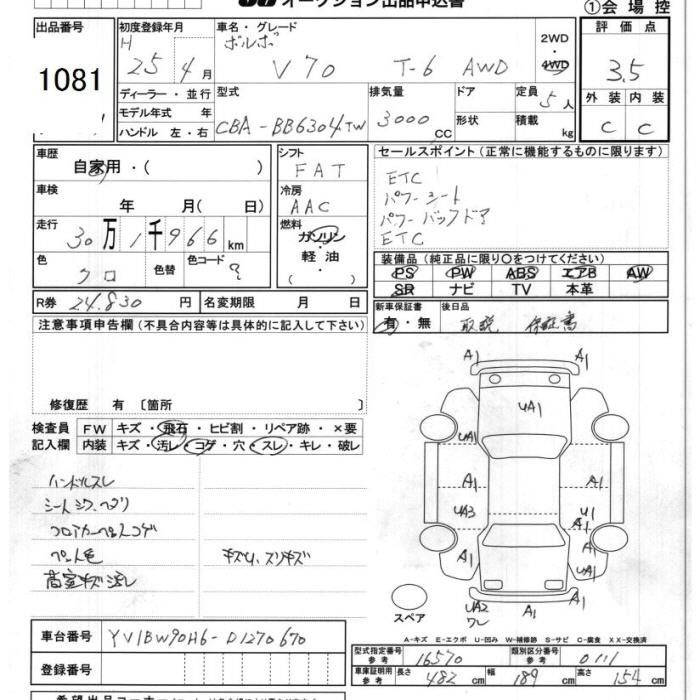 オークション出品申込書
①会場控
出品番号
1081
初度登録年月
H 25年4月
車名・グレード
ボルボ
V70 T-6 AWD
2WD
4WD
評価点
3.5
外装 内装
C C
ディーラー・並行
モデル年式 年
ハンドル 左・右
型式
CBA-BB6304TW
排気量
3000cc
ドア
形状
定員
5人
積載
kg
車歴
自家用・( )
車検
年 月( 日)
走行
30万1千966km
色
クロ
色替
色コード
R券 24,830円 名変期限 月 日
シフト
FAT
冷房
AAC
燃料
ガソリン
軽油
( ・ )
セールスポイント(正常に機能するものに限ります)
ETC
パワーシート
パワーバックドア
ETC
装備品(純正品に限り○をつけてください)
PS PW ABS エアB AW
SR ナビ TV 本革
新車保証書
有・無
後日品
取説 保証書
注意事項申告欄(不具合内容等は具体的に記入して下さい)
修復歴 有 〔箇所 〕
検査員記入欄
FW キズ・飛石・ヒビ割・リペア跡・×要
内装 キズ・汚レ・コゲ・穴・スレ・キレ・破レ
ハンドルスレ
シートシワ、ヘタリ
フロアカーペットコゲ
ペット毛
荷室キズ汚レ
キズU、スリキズ
A1 A1
A1 A1
UA1
UA1
A1 A1
UA3 U1
A1 A1
UA2 ワレ A1 A1
スペア
A-キズ E-エクボ U-凹み W-補修跡 S-サビ C-腐食 XX-交換済
車台番号 YV1BW90H6-D1270670
登録番号
型式指定番号 参考 16570 類別区分番号 参考 0111
車庫証明用 参考 長さ 482 cm 幅 189 cm 高さ 154 cm
希望出品コーナー